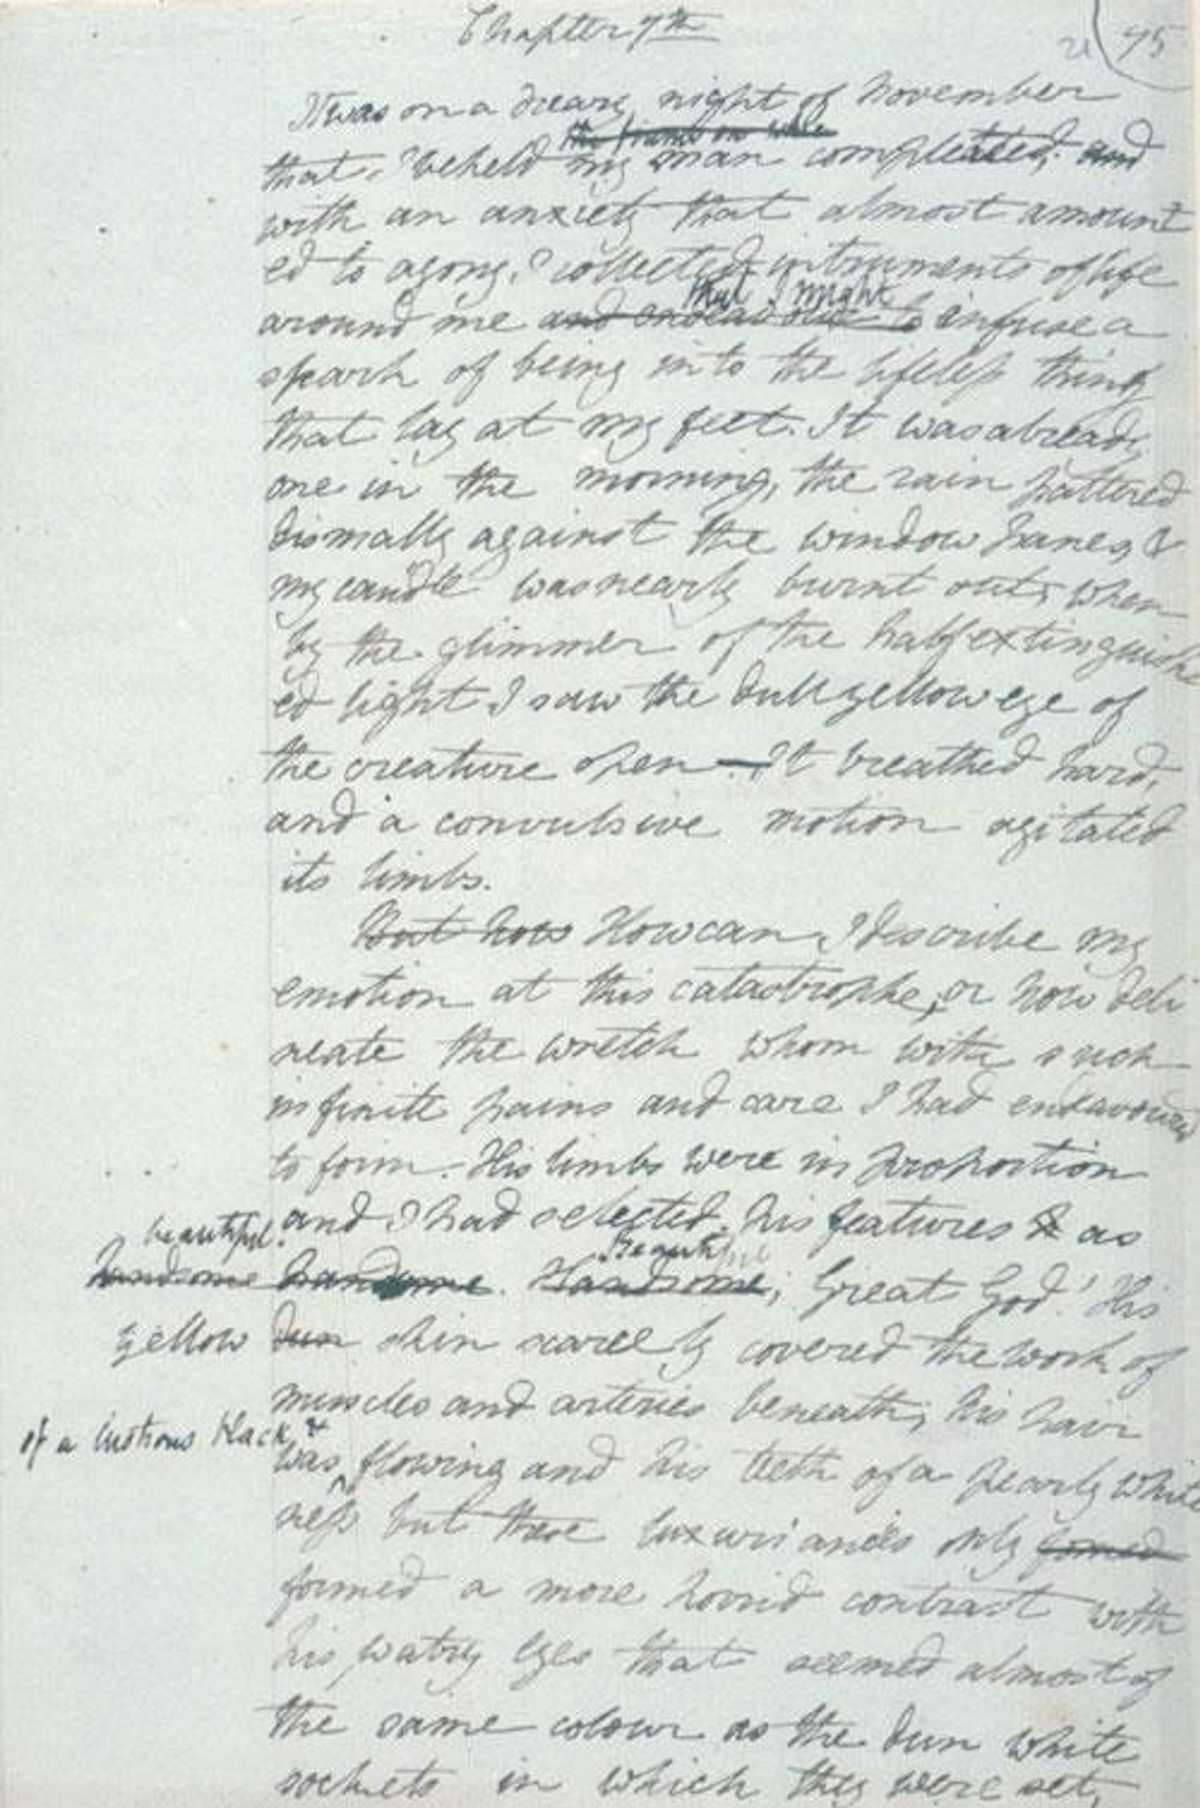 Chapter 7th
21 75
It was on a dreary night of November
the frame on whic
that I beheld my man compleated, and
with an anxiety that almost amount
ed to agony, I collected instruments of life
that I might
around me and endeavour to infuse a
spark of being into the lifeless thing
that lay at my feet. It was already
one in the morning, the rain pattered
dismally against the window panes, &
my candle was nearly burnt out, when
by the glimmer of the half extinguish
ed light I saw the dull yellow eye of
the creature open—It breathed hard,
and a convulsive motion agitated
its limbs.
But how How can I describe my
emotion at this catastrophe, or how deli
neate the wretch whom with such
infinite pains and care I had endavoured
to form. His limbs were in proportion
and I had selected his features & as
beautiful. Beautiful
handsome handsome. Handsome, Great God! His
yellow dun skin scarcely covered the work of
muscles and arteries beneath; his hair
of a lustrous black, &
was flowing and his teeth of a pearly white
ness but these luxuriancies only formed
formed a more horrid contrast with
his watry eyes that seemed almost of
the same colour as the dun white
sockets in which they were set,